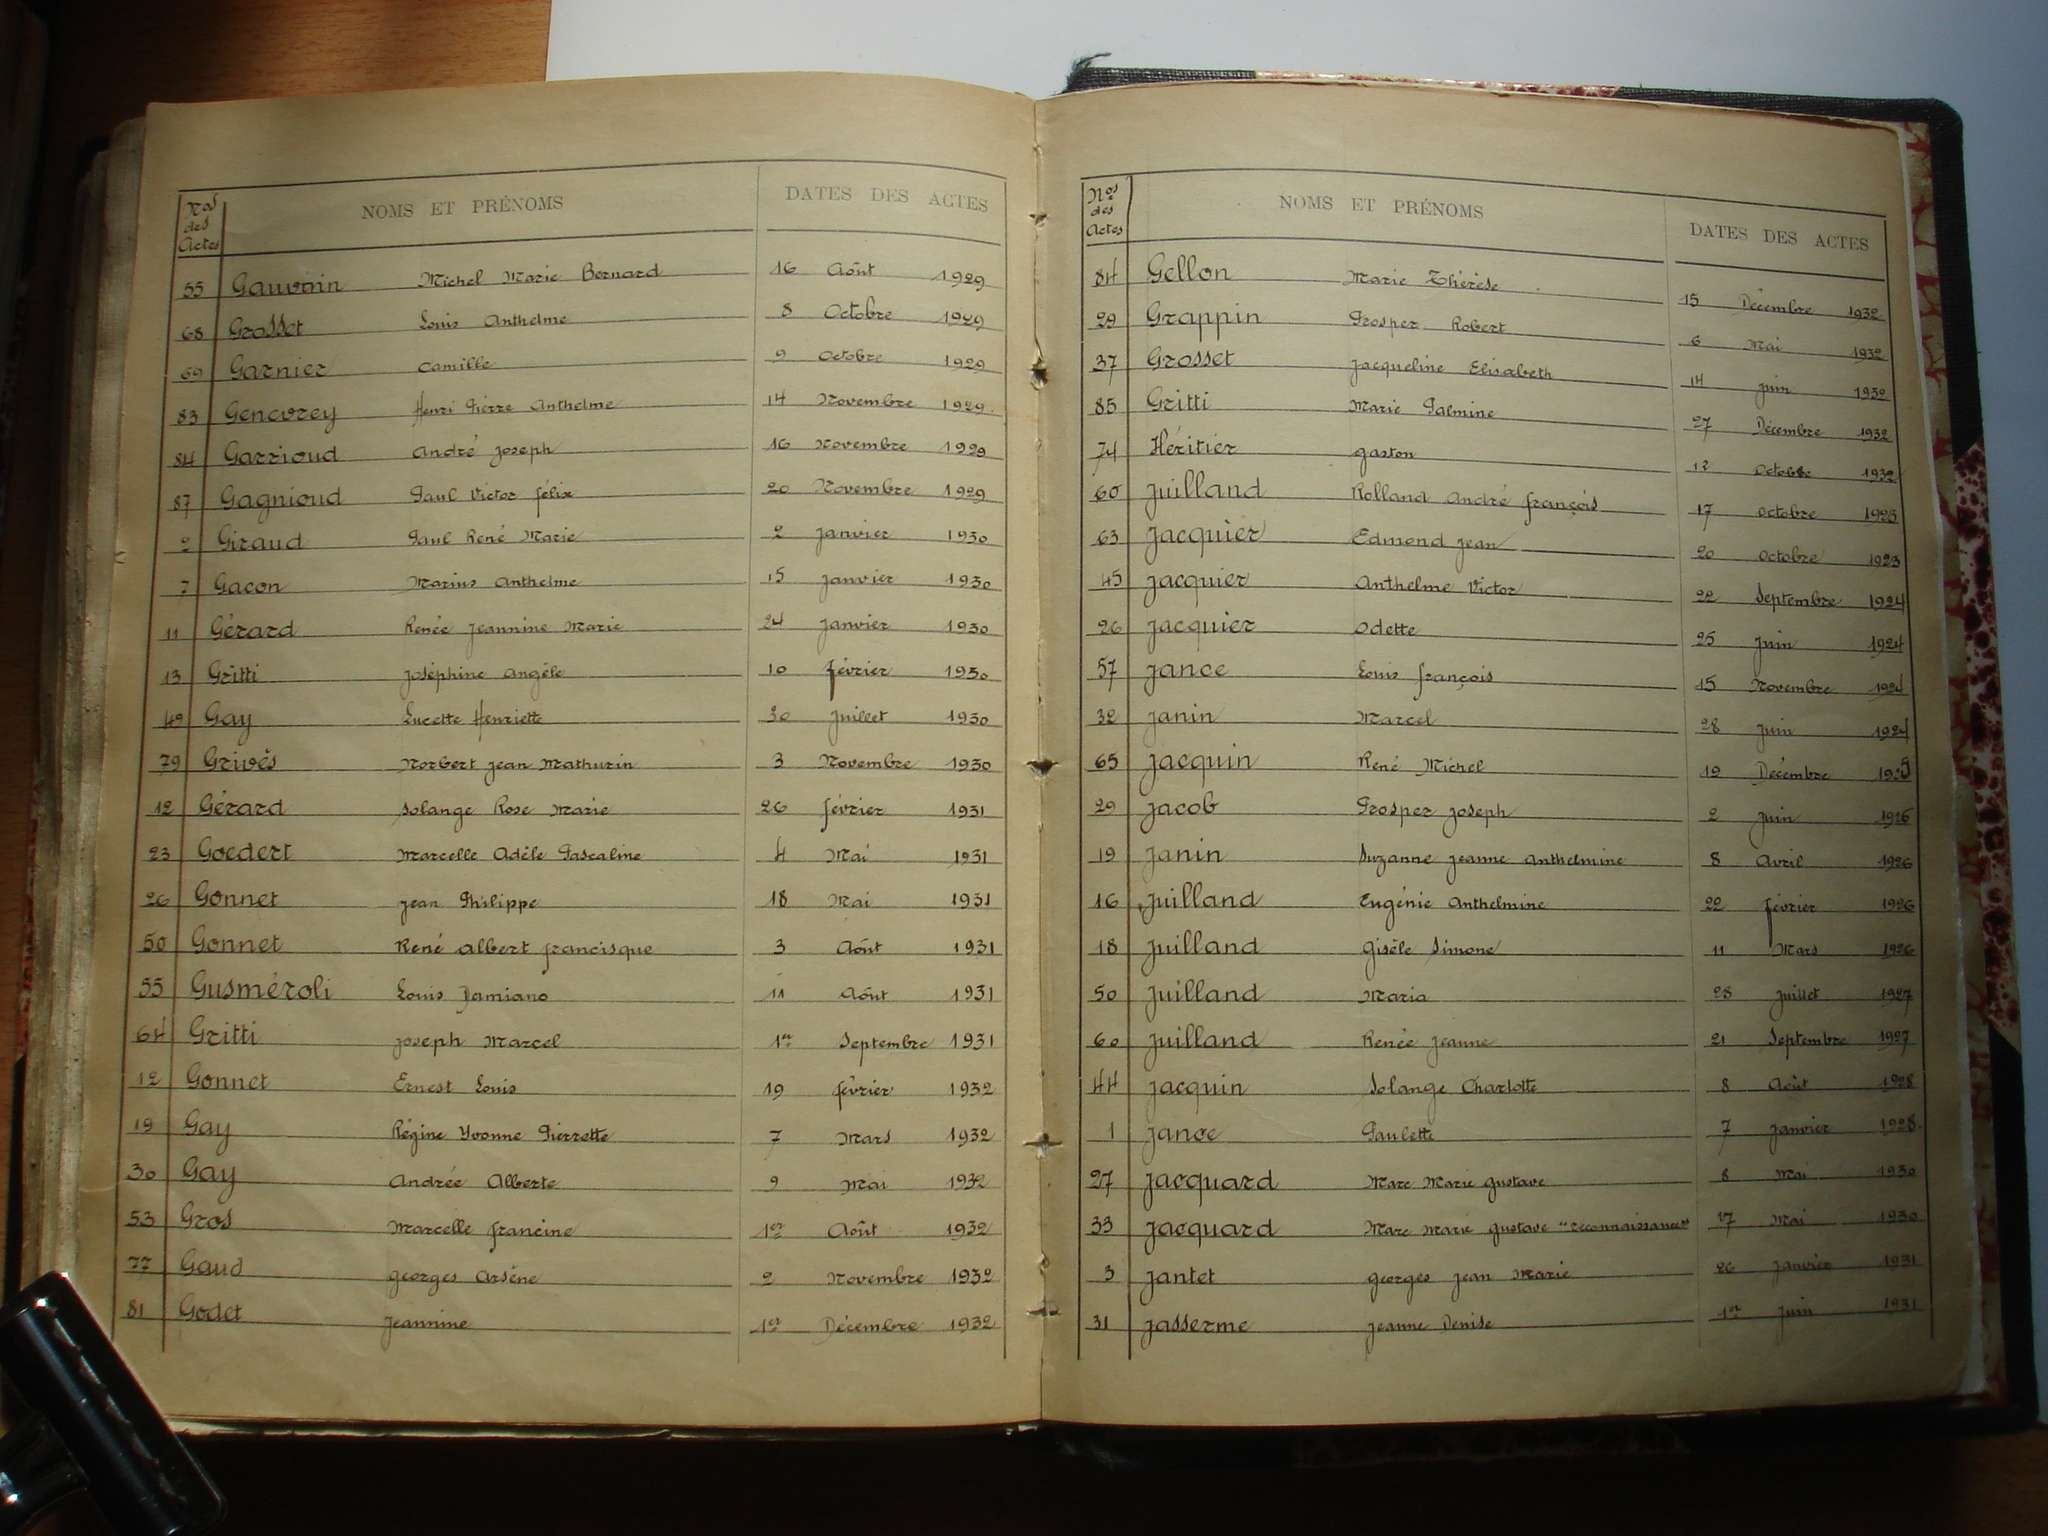 Nos des Actes NOMS ET PRÉNOMS DATES DES ACTES
55 Gauvain Michel Marie Bernard 16 Août 1929
68 Grosset Louis Anthelme 8 Octobre 1929
69 Garnier Camille 9 Octobre 1929
83 Genevrey Henri Pierre Anthelme 14 Novembre 1929
84 Garrioud André Joseph 16 Novembre 1929
87 Gagnioud Paul Victor Félix 20 Novembre 1929
2 Giraud Paul René Marie 2 Janvier 1930
7 Gacon Marius Anthelme 15 Janvier 1930
11 Gérard Renée Jeannine Marie 24 Janvier 1930
13 Gritti Joséphine Angèle 10 Février 1930
49 Gay Lucette Henriette 30 Juillet 1930
79 Grivès Norbert Jean Mathurin 3 Novembre 1930
12 Gérard Solange Rose Marie 26 Février 1931
23 Goedert Marcelle Adèle Pascaline 4 Mai 1931
26 Gonnet Jean Philippe 18 Mai 1931
50 Gonnet René Albert Francisque 3 Août 1931
55 Gusméroli Louis Damiano 11 Août 1931
64 Gritti Joseph Marcel 1er Septembre 1931
12 Gonnet Ernest Louis 19 Février 1932
19 Gay Régine Yvonne Pierrette 7 Mars 1932
30 Gay Andrée Alberte 9 Mai 1932
53 Gros Marcelle Francine 1er Août 1932
77 Gaud Georges Arsène 2 Novembre 1932
81 Godet Jeannine 1er Décembre 1932
Nos des Actes NOMS ET PRÉNOMS DATES DES ACTES
84 Gellon Marie Thérèse 15 Décembre 1932
29 Grappin Prosper Robert 6 Mai 1932
37 Grosset Jacqueline Elisabeth 14 Juin 1932
85 Gritti Marie Palmine 27 Décembre 1932
74 Héritier Gaston 12 Octobre 1932
60 Juilland Rolland André François 17 Octobre 1923
63 Jacquier Edmond Jean 20 Octobre 1923
45 Jacquier Anthelme Victor 22 Septembre 1924
26 Jacquier Odette 25 Juin 1924
57 Jance Louis François 15 Novembre 1924
32 Janin Marcel 28 Juin 1924
65 Jacquin René Michel 19 Décembre 1925
29 Jacob Prosper Joseph 2 Juin 1926
19 Janin Suzanne Jeanne Anthelmine 8 Avril 1926
16 Juilland Eugénie Anthelmine 22 Février 1926
18 Juilland Gisèle Simone 11 Mars 1926
50 Juilland Maria 28 Juillet 1927
60 Juilland Renée Jeanne 21 Septembre 1927
44 Jacquin Solange Charlotte 8 Août 1928
1 Jance Paulette 7 Janvier 1928
27 Jacquard Marc Marie Gustave 8 Mai 1930
33 Jacquard Marc Marie Gustave "reconnaissance" 17 Mai 1930
3 Jantet Georges Jean Marie 26 Janvier 1931
31 Jasserme Jeanne Denise 1er Juin 1931